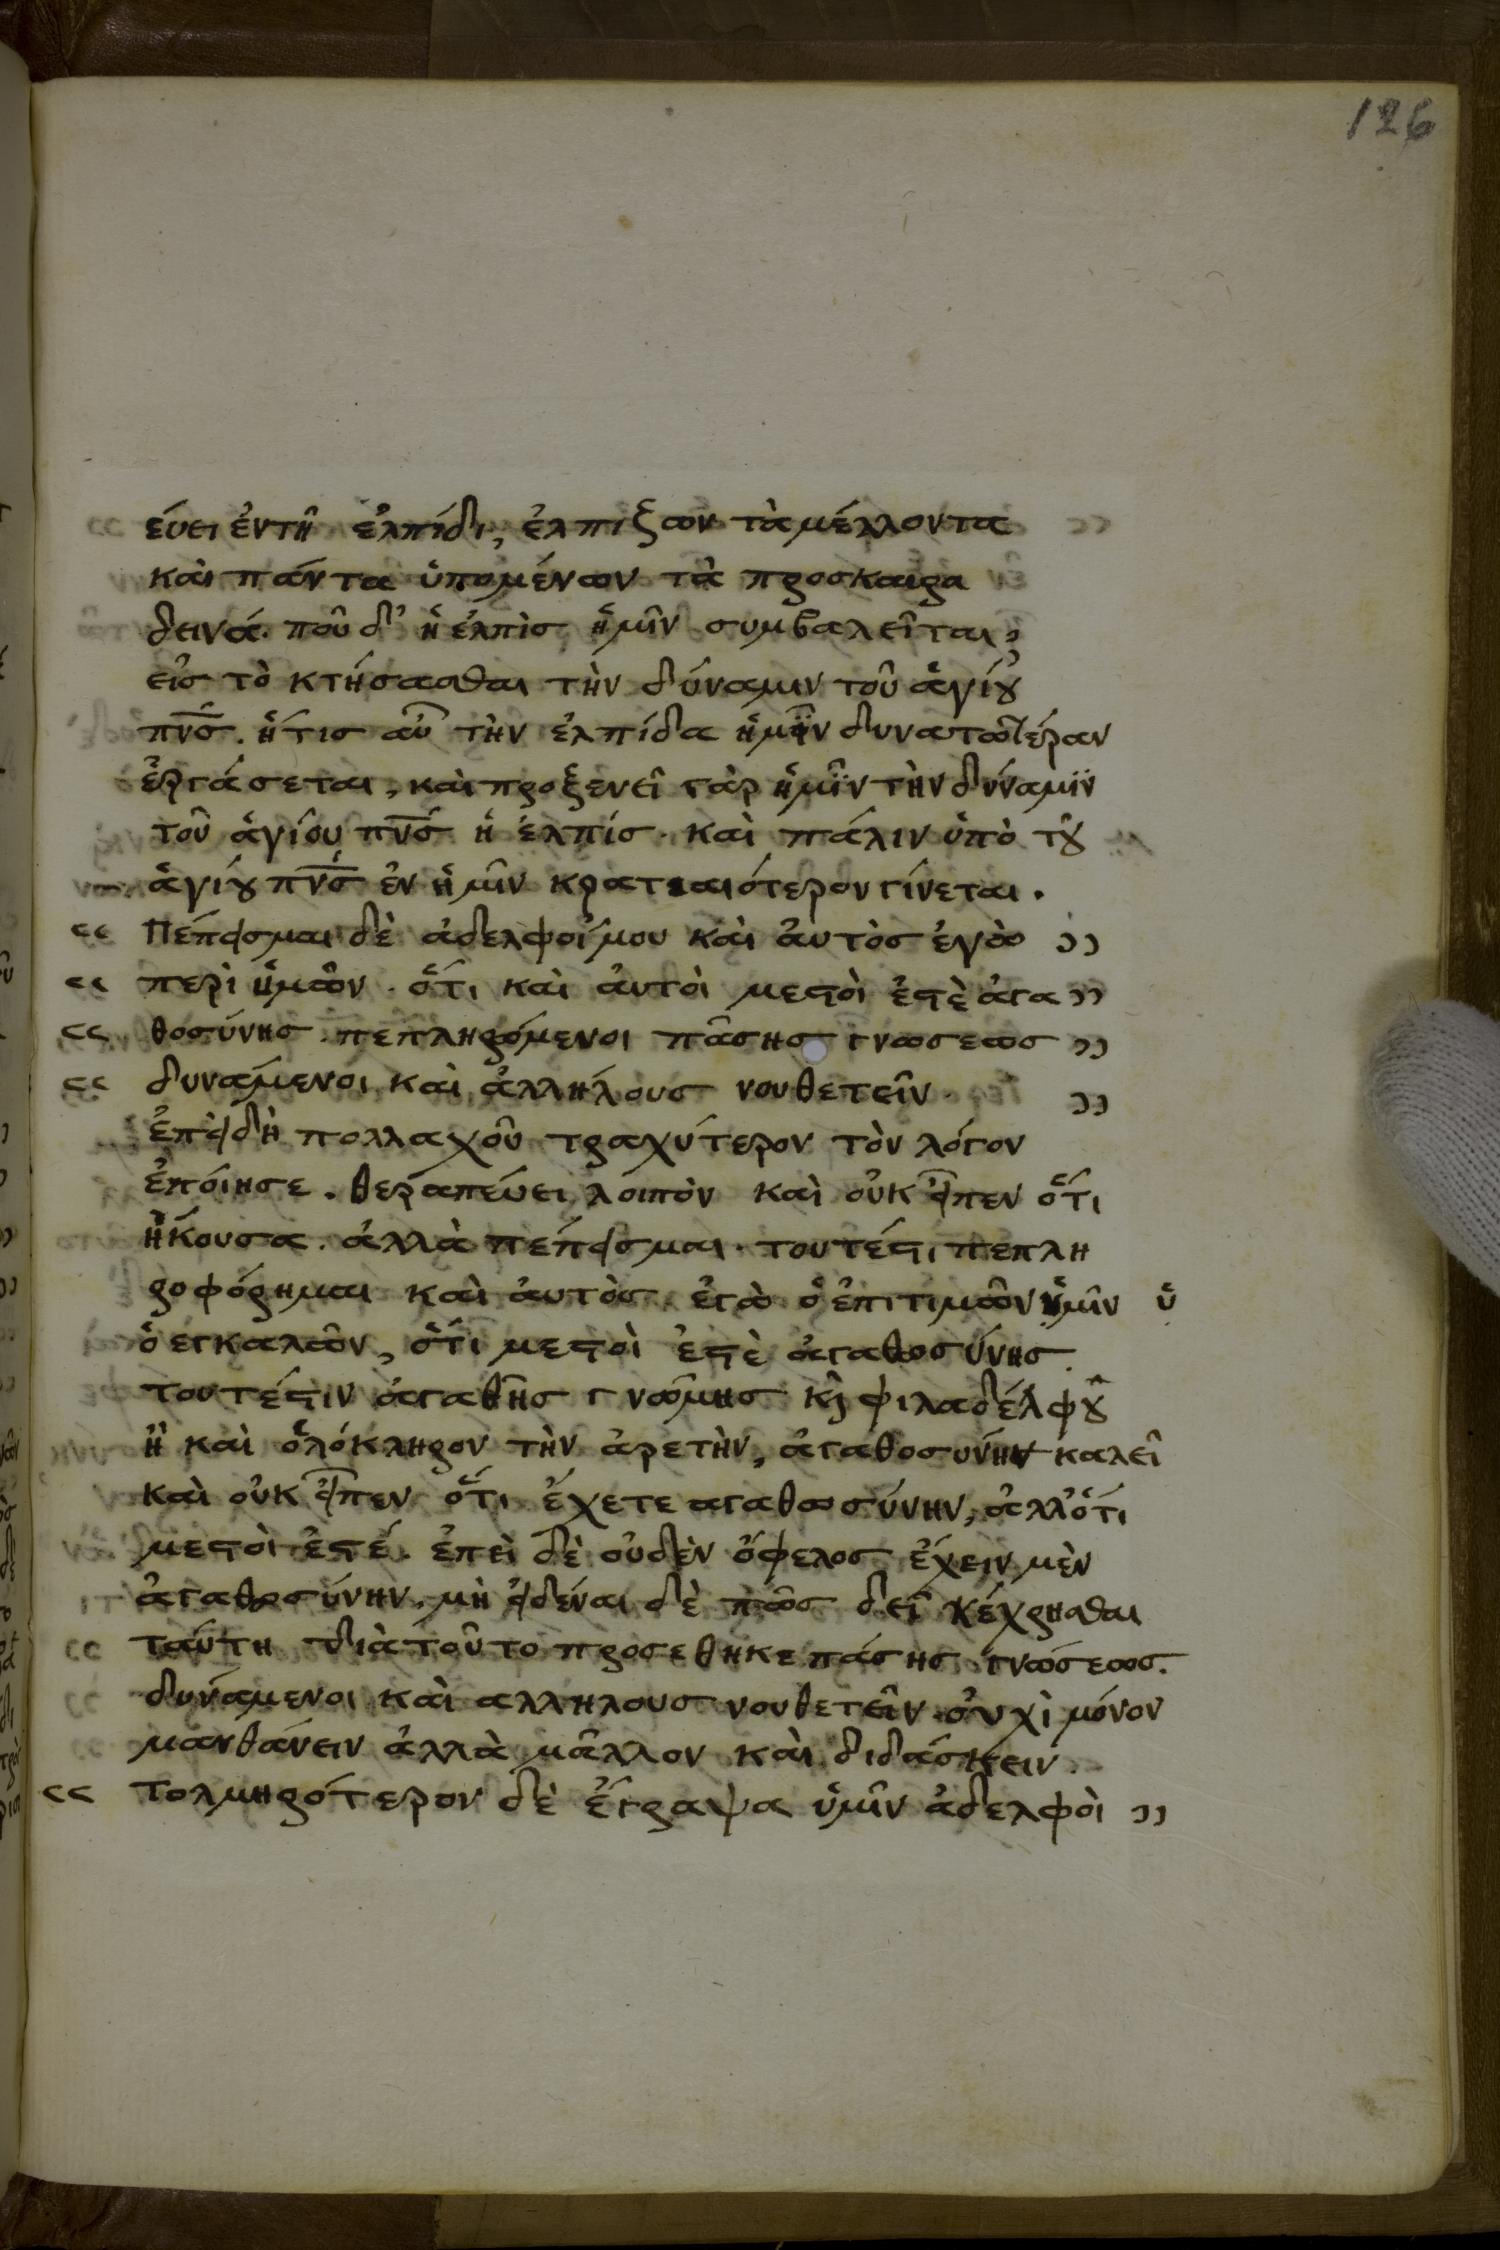 126
εύει ἐν τῆ ἐλπίδι, ἐλπίζων τὰ μέλλοντα
καὶ πάντα ὑπομένων τὰ προσκαιρα
δεινά. ποῦ δ' ἡ ἐλπὶς ἡμῖν συμβαλεῖται,
εἰς τὸ κτήσασθαι τὴν δύναμιν τοῦ ἁγίου
πν̅ς̅. ἥτις αὖ τὴν ἐλπίδα ἡμῖν δυνατωτέραν
ἐργάσεται, καὶ προξενεῖ γὰρ ἡμῖν τὴν δύναμιν
τοῦ ἁγίου πν̅ς̅ ἡ ἐλπίς. καὶ πάλιν ὑπὸ τοῦ
ἁγίου πν̅ς̅ ἐν ἡμῖν κραταιότερον γίνεται.
“ Πέπεισμαι δὲ ἀδελφοί μου καὶ αὐτὸς ἐγὼ ”
“ περὶ ἡμῶν. ὅτι καὶ αὐτοὶ μεστοὶ ἐστὲ ἀγα ”
“ θοσύνης. πεπληρόμενοι πᾶσης γνωσεως ”
“ δυνάμενοι καὶ ἀλλήλους νουθετεῖν. ”
ἐπειδὴ πολλαχοῦ τραχύτερον τὸν λόγον
ἐποίησε. θεραπεύει λοιπὸν καὶ οὐκ εἶπεν ὅτι
ἤκουσα. ἀλλὰ πέπεισμαι. τουτέστι πεπλη
ροφόρημαι καὶ αὐτὸς ἐγὼ ὁ ἐπιτιμῶν ἡμῖν ὑ
ὁ εγκαλῶν, ὅτι μεστοὶ ἐστὲ ἀγαθοσύνης.
τουτέστιν ἀγαθῆς γνώμης κὶ φιλαδέλφου
ἢ καὶ ὁλόκληρον τὴν ἀρετὴν, ἀγαθοσύνην καλεῖ
καὶ οὐκ εἶπεν ὅτι ἔχετε αγαθωσύνην, ἀλλ' ὅτι
μεστοὶ ἐστέ. ἐπεὶ δὲ οὐδὲν ὄφελος ἔχειν μὲν
ἀγαθοσύνην, μὴ εἰδέναι δὲ πῶς δεῖ κέχρησθαι
ταύτη διὰ τοῦτο προσεθηκε πάσης γνώσεως.
δυνάμενοι καὶ αλληλους νουθετεῖν. οὐχὶ μόνον
μανθάνειν ἀλλὰ μᾶλλον καὶ διδάσκειν.
“ τολμηρότερον δὲ ἔγραψα ὑμῖν ἀδελφοὶ ”